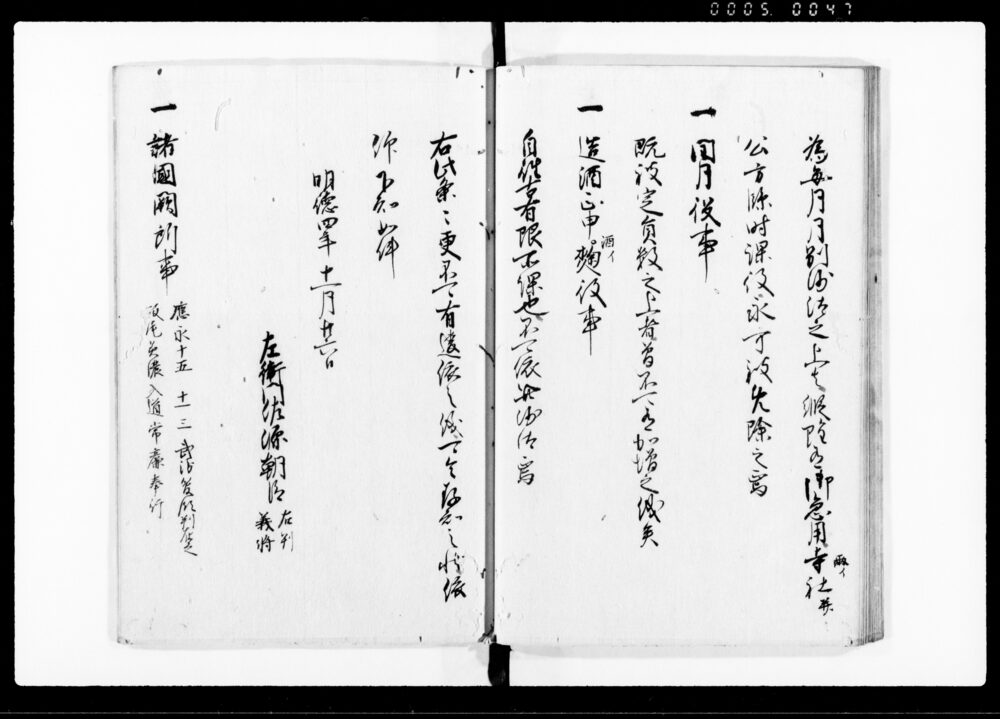 0005. 0047
為毎月月別沙汰之上者縦雖有御急用寺社并
公方臨時課役永可被免除之焉
一 閏月役事
既被定員数之上者曽不可有加増之儀矣
一 造酒正申麹役事
酒イ
自往古有限所課也不可依此沙汰焉
右此条々更不可有遺依之儀可令存知之状依
仰下知如件
明徳四年十一月廿六日
左衛門佐源朝臣 在判
義将
一 諸國闕所事 應永十五 十一 三
飯尾美濃入道常廉奉行